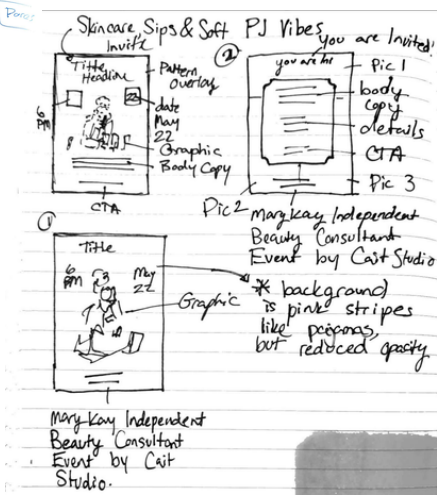 Poros
Skincare, Sips & Soft PJ Vibes
Invite
Title
Headline
Pattern
Overlay
6
PM
22
date
May
22
Graphic
Body Copy
CTA
2
you are Invited!
you are Inv
Pic 1
body
copy
details
CTA
Pic 3
Pic 2
Mary Kay Independent
Beauty Consultant
Event by Cait Studio
1
Title
6
PM
May
22
Graphic
* background
is pink stripes
like pajamas,
but reduced opacity
Mary Kay Independent
Beauty Consultant
Event by Cait
Studio.